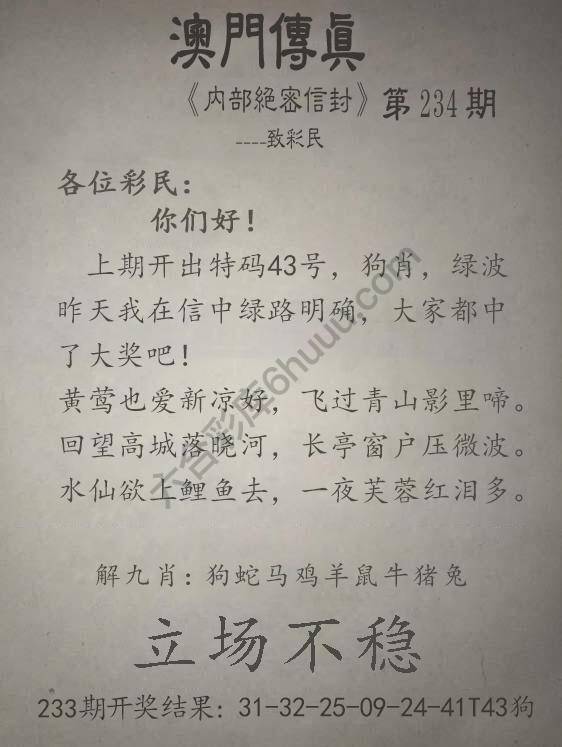 澳門傳眞
《内部絕密信封》第234期
----致彩民
各位彩民：
你们好！
上期开出特码43号，狗肖，绿波
昨天我在信中绿路明确，大家都中
了大奖吧！
黄莺也爱新凉好，飞过青山影里啼。
回望高城落晓河，长亭窗户压微波。
水仙欲上鲤鱼去，一夜芙蓉红泪多。
解九肖：狗蛇马鸡羊鼠牛猪兔
立场不稳
233期开奖结果：31-32-25-09-24-41T43狗
六合彩库6huuu.com